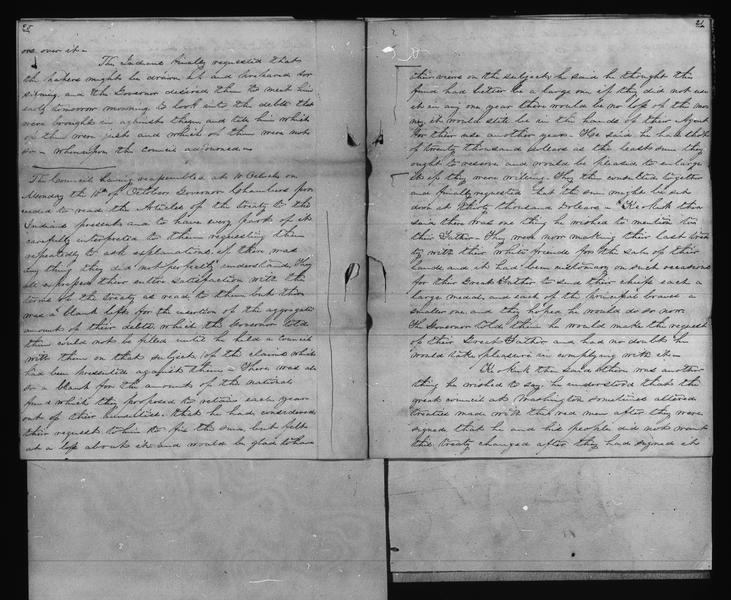 25
over it –
The Indians finally requested that
the papers might be drawn up and prepared for
signing and the Governor desired them to meet him
early tomorrow morning to look into the debts that
were brought in against them and tell him which
of them were just and which of them were not
so – whereupon the council adjourned –
The Council having reassembled at 10 Oclock on
Monday the of October Governor Chambers pro
ceeded to read the Articles of the treaty to the
Indians present and to have every part of it
carefully interpreted to them requesting them
repeatedly to ask explanations if there was
any thing they did not perfectly understand, They
all expressed their entire satisfaction with the
terms of the treaty as read to them but there
was a blank left for the insertion of the aggregate
amount of their debts which the Governor told
them could not be filled until he held a council
with them on that subject of the claims which
had been presented against them – There was al
so a blank for the amount of the national
fund which they proposed to retain each year
out of their annuities. that he had considered
their request to him to fix the sum, but felt
at a loss about it and would be glad to have
26
their views on the subject, he said he thought the
fund had better be a large one if they did not use
it in any one year there would be no loss of the mo
ney it would still be in the hands of their Agent
for their use another year – He said he had thought
of twenty thousand dollars as the least sum they
ought to reserve and would be pleased to enlarge
it if they were willing. They then consulted together
and finally requested that the sum might be set
down at thirty thousand dollars – Ke-o-kuk then
said there was one thing he wished to mention to
their Father – They were now making their last trea
ty with their white friends for the sale of their
lands and it had been customary on such occasions
for their Great Father to send their chiefs each a
large medal, and each of the principal braves a
smaller one and they hoped he would do so now.
The Governor told them he would make the request
of their Great Father and had no doubt he
would take pleasure in complying with it –
Ke-o-kuk then said there was another
thing he wished to say, he understood that the
great council at Washington sometimes altered
treaties made with the red men after they were
signed that he and his people did not want
this treaty changed after they had signed it